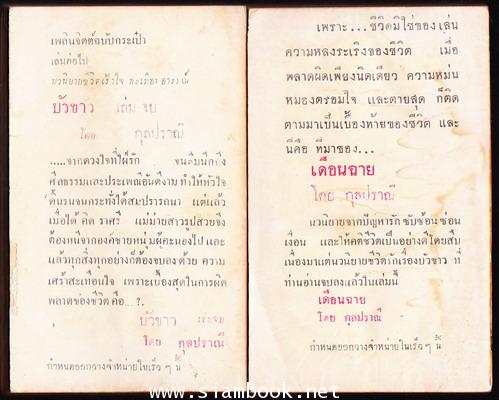 เพลินจิตต์ฉบับกระเป๋า
เล่มต่อไป
นวนิยายชีวิตเร้าใจ
บัวขาว เล่ม จบ
โดย กุลปราณี
.....จากดวงใจที่ใฝ่รัก จนลืมนึกถึง
ศีลธรรมและประเพณีอันดีงาม ทำให้หัวใจ
ดิ้นรนจนกระทั่งได้สมปรารถนา แต่แล้ว
เมื่อได้ คิด ราศรี แม่ม่ายสาวรูปสวยจึง
ต้องหนีจากองค์ชายหนุ่มผู้คะนองไป และ
แล้วทุกสิ่งทุกอย่างก็ต้องจบลงด้วย ความ
เศร้าสะเทือนใจ เพราะเบื้องสุดในการผิด
พลาดของชีวิต คือ...?.
บัวขาว เล่มจบ
โดย กุลปราณี
กำหนดออกวางจำหน่ายในเร็ว ๆ นี้
เพราะ...ชีวิตมิใช่ของเล่น
ความหลงระเริงของชีวิต เมื่อ
พลาดผิดเพียงนิดเดียว ความหม่น
หมองตรอมใจ และตายสุด ก็ติด
ตามมาเป็นเบื้องท้ายของชีวิต และ
นี่คือ ที่มาของ...
เดือนฉาย
โดย กุลปราณี
นวนิยายจากปัญหารัก ซับซ้อน ซ่อน
เงื่อน และให้คติชีวิตเป็นอย่างดี โดยสืบ
เนื่องมาแต่นวนิยายชีวิตรักเรื่องบัวขาว ที่
ท่านอ่านจบลงแล้วในเล่มนี้
เดือนฉาย
โดย กุลปราณี
กำหนดออกวางจำหน่ายในเร็ว ๆ นี้
www.siambook.net